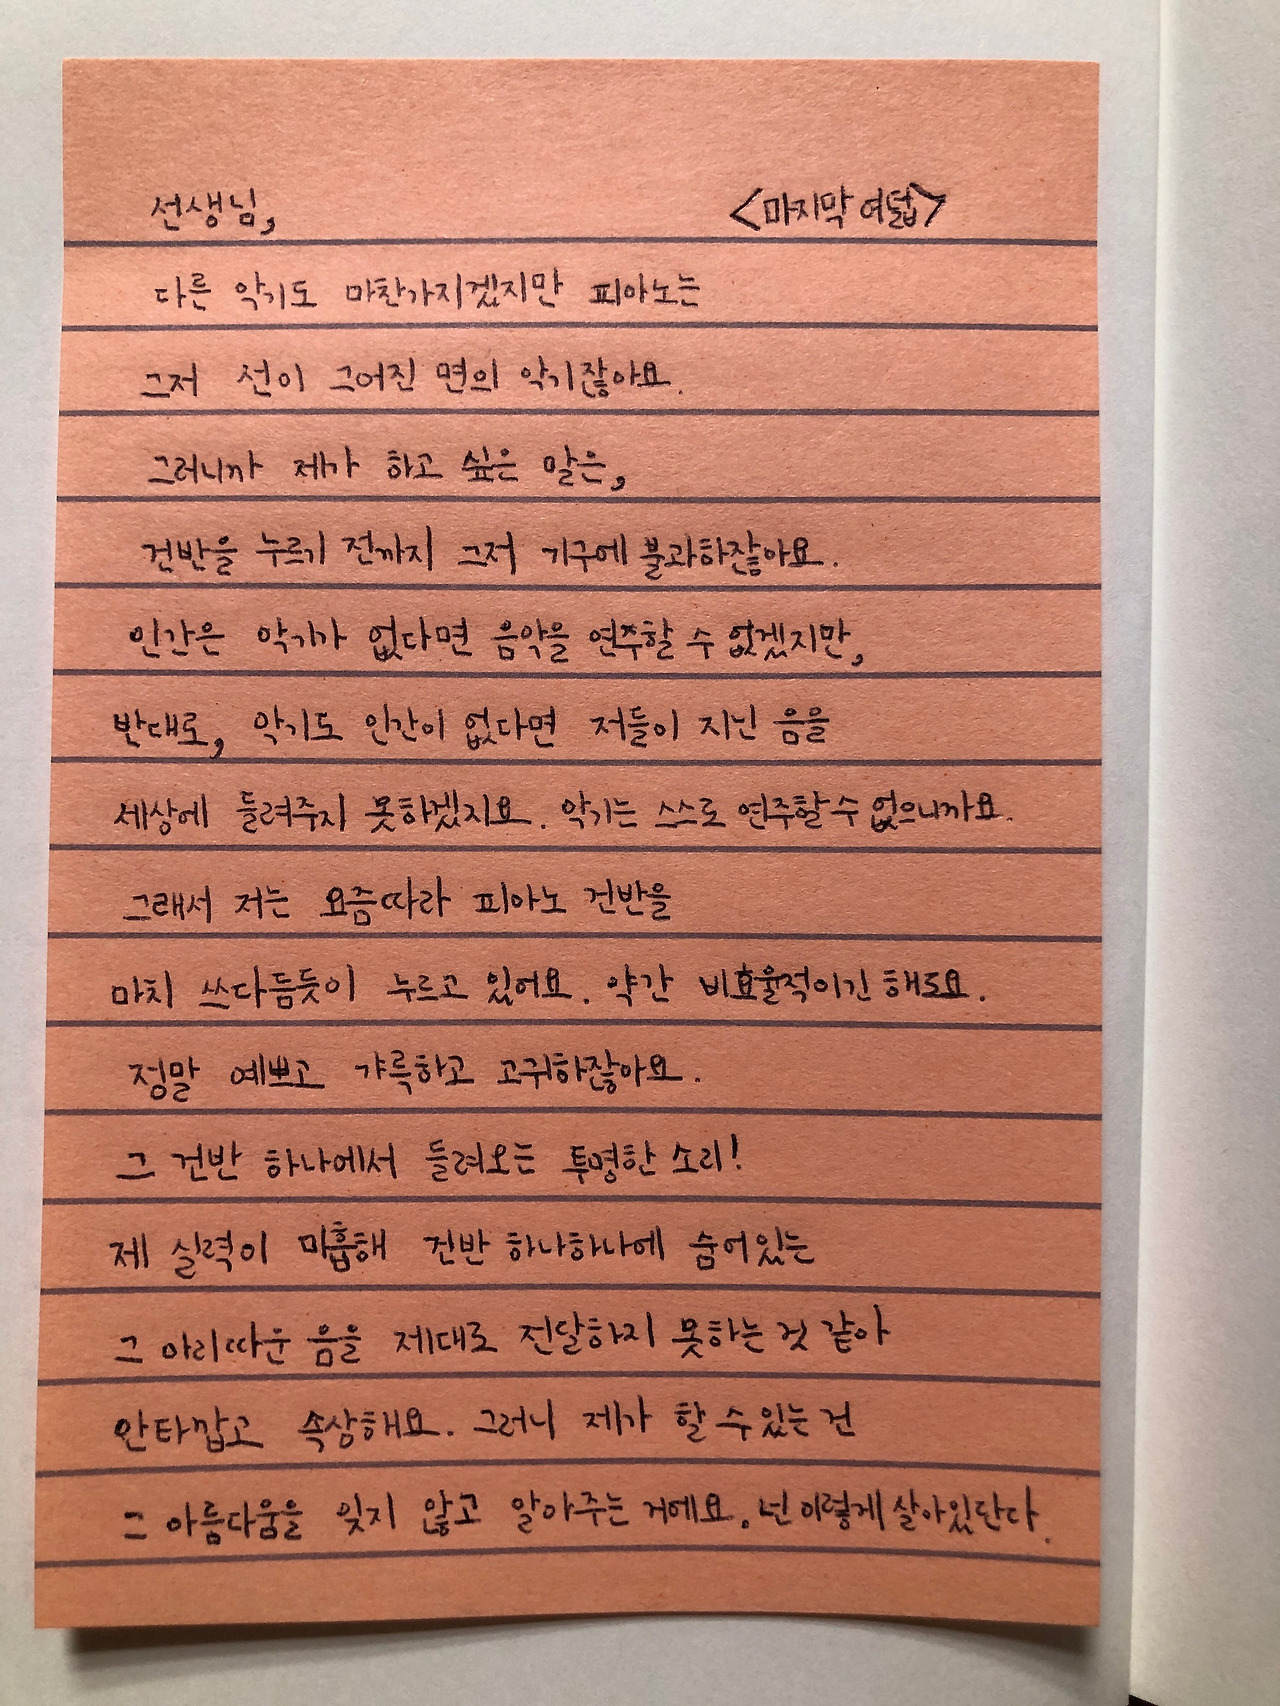 선생님, <마지막 여덟>
다른 악기도 마찬가지겠지만 피아노는
그저 선이 그어진 면의 악기잖아요.
그러니까 제가 하고 싶은 말은,
건반을 누르기 전까지 그저 기구에 불과하잖아요.
인간은 악기가 없다면 음악을 연주할 수 없겠지만,
반대로, 악기도 인간이 없다면 저들이 지닌 음을
세상에 들려주지 못하겠지요. 악기는 스스로 연주할 수 없으니까요.
그래서 저는 요즘따라 피아노 건반을
마치 쓰다듬듯이 누르고 있어요. 약간 비효율적이긴 해도요.
정말 예쁘고 갸륵하고 고귀하잖아요.
그 건반 하나에서 들려오는 투명한 소리!
제 실력이 미흡해 건반 하나하나에 숨어있는
그 아리따운 음을 제대로 전달하지 못하는 것 같아
안타깝고 속상해요. 그러니 제가 할 수 있는 건
그 아름다움을 잊지 않고 알아주는 거에요. 넌 이렇게 살아있단다.